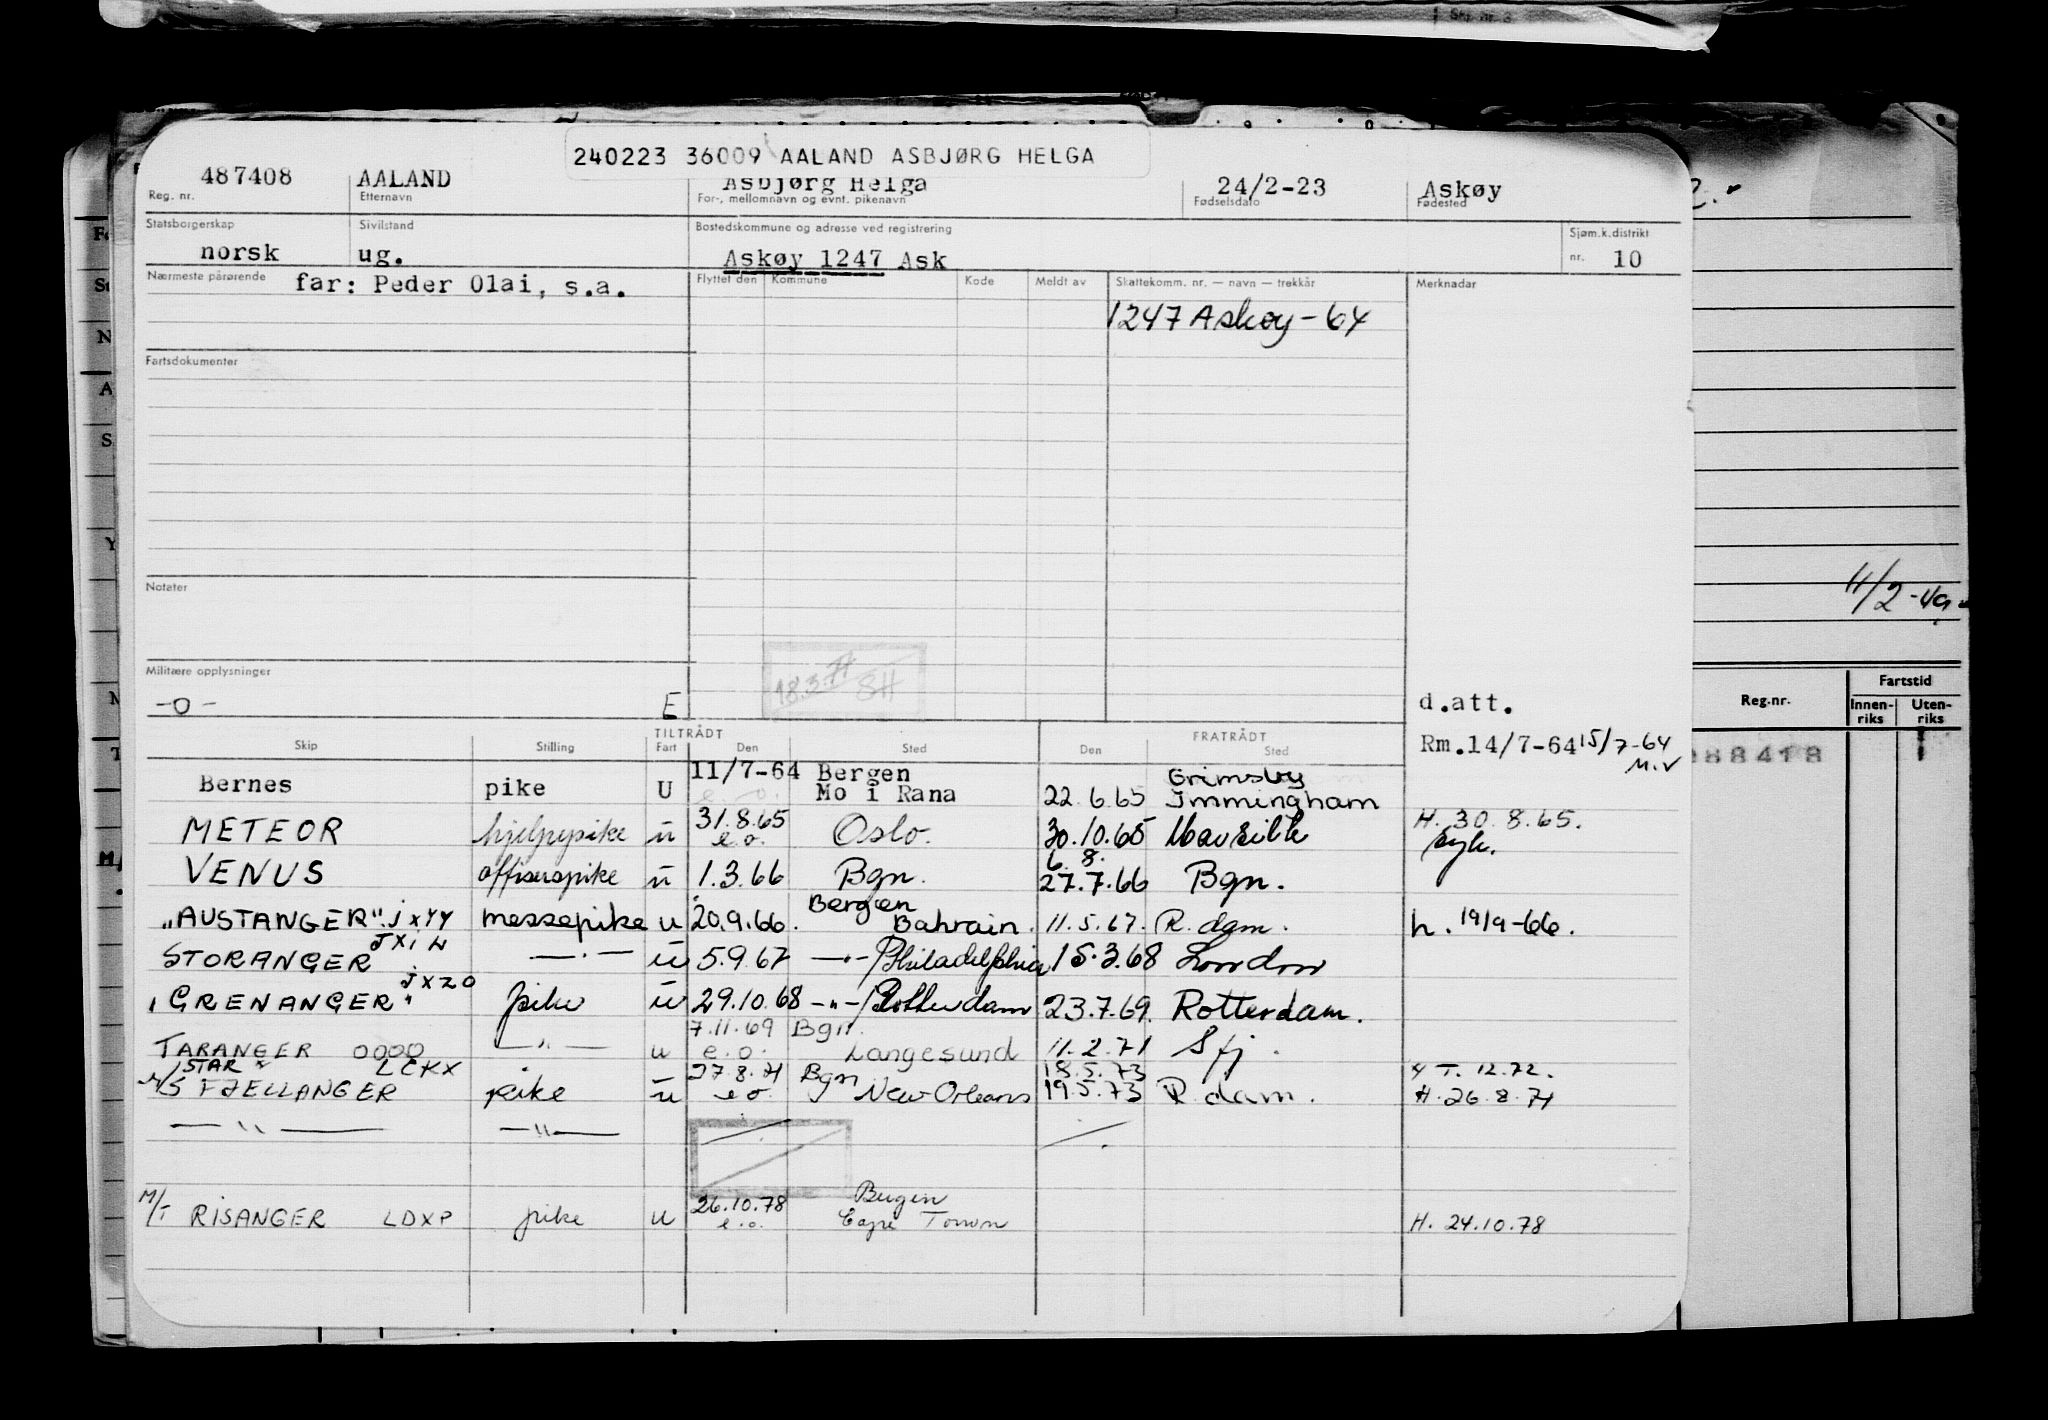 240223 36009 AALAND ASBJØRG HELGA
487408 AALAND Asbjørg Helga 24/2-23 Askøy
Reg. nr. Etternavn For-, mellomnavn og evnt. pikenavn Fødselsdato Fødested
Statsborgerskap Sivilstand Bostedskommune og adresse ved registrering Sjøm.k.distrikt
norsk ug. Askøy 1247 Ask nr. 10
Nærmeste pårørende far: Peder Olai, s.a. Flyttet den Kommune Kode Meldt av Skattekomm. nr. — navn — trekkår Merknader
1247 Askøy - 64
Fartsdokumenter
Notater
11/2-49
Militære opplysninger
-o- E d.att.
Reg.nr. Fartstid
Innen-riks Uten-riks
TILTRÅDT FRATRÅDT
Skip Stilling Fart Den Sted Den Sted
Rm.14/7-64 15/7-64
M.V
Bernes pike U 11/7-64 Bergen Mo i Rana 22.6.65 Grimsby Immingham
METEOR hjelpepike ü 31.8.65 e.o. Oslo. 30.10.65 H. 30.8.65. syk.
VENUS offiserspike ü 1.3.66 Bgn. 6.8. 27.7.66 Bgn.
"AUSTANGER" JXYY messepike u 20.9.66. Bergen Bahrain. 11.5.67. R.dam. h. 19/9-66.
STORANGER JXIW —·— ü 5.9.67 —·— / Philadelphia 15.3.68 London
"GRENANGER" JXZO pike ü 29.10.68 —"— / Rotterdam 23.7.69. Rotterdam.
TARANGER —"— u 7.11.69 e.o. Bgn. Langesund 11.2.71 Sfj.
M/S STAR FJELLANGER LCKX pike ü 27.8.71 e.o. Bgn New Orleans 18.5.73 19.5.73 R.dam. T. 12.72. H. 26.8.71
—"— —"—
M/T RISANGER LDXP pike u 26.10.78 e.o. Bergen Cape Town H. 24.10.78